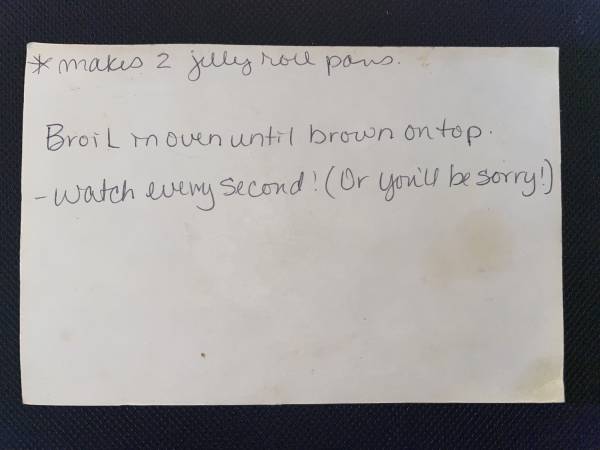 * makes 2 jelly roll pans.
Broil in oven until brown on top.
- Watch every second! (Or you'll be sorry!)